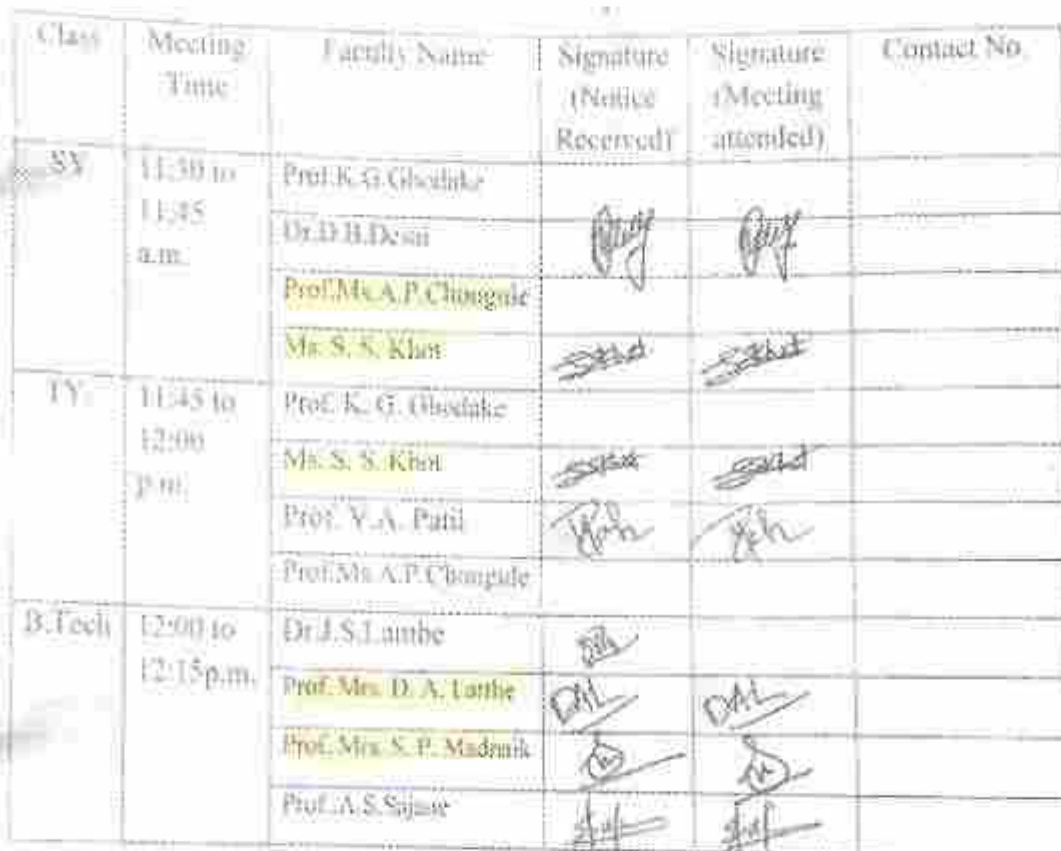 Class Meeting Time Faculty Name Signature (Notice Received) Signature (Meeting attended) Contact No.
SY 11:30 to 11:45 a.m. Prof.K.G.Ghodake
Dr.D.B.Desai
Prof.Ms.A.P.Chougule
Ms. S. S. Khot
TY. 11:45 to 12:00 p.m. Prof. K. G. Ghodake
Ms. S. S. Khot
Prof. V.A. Patil
Prof.Ms.A.P.Chougule
B.Tech 12:00 to 12:15p.m. Dr.J.S.Lambe
Prof. Mrs. D. A. Latthe DAL DAL
Prof. Mrs. S. P. Madnaik
Prof..A.S.Sajane